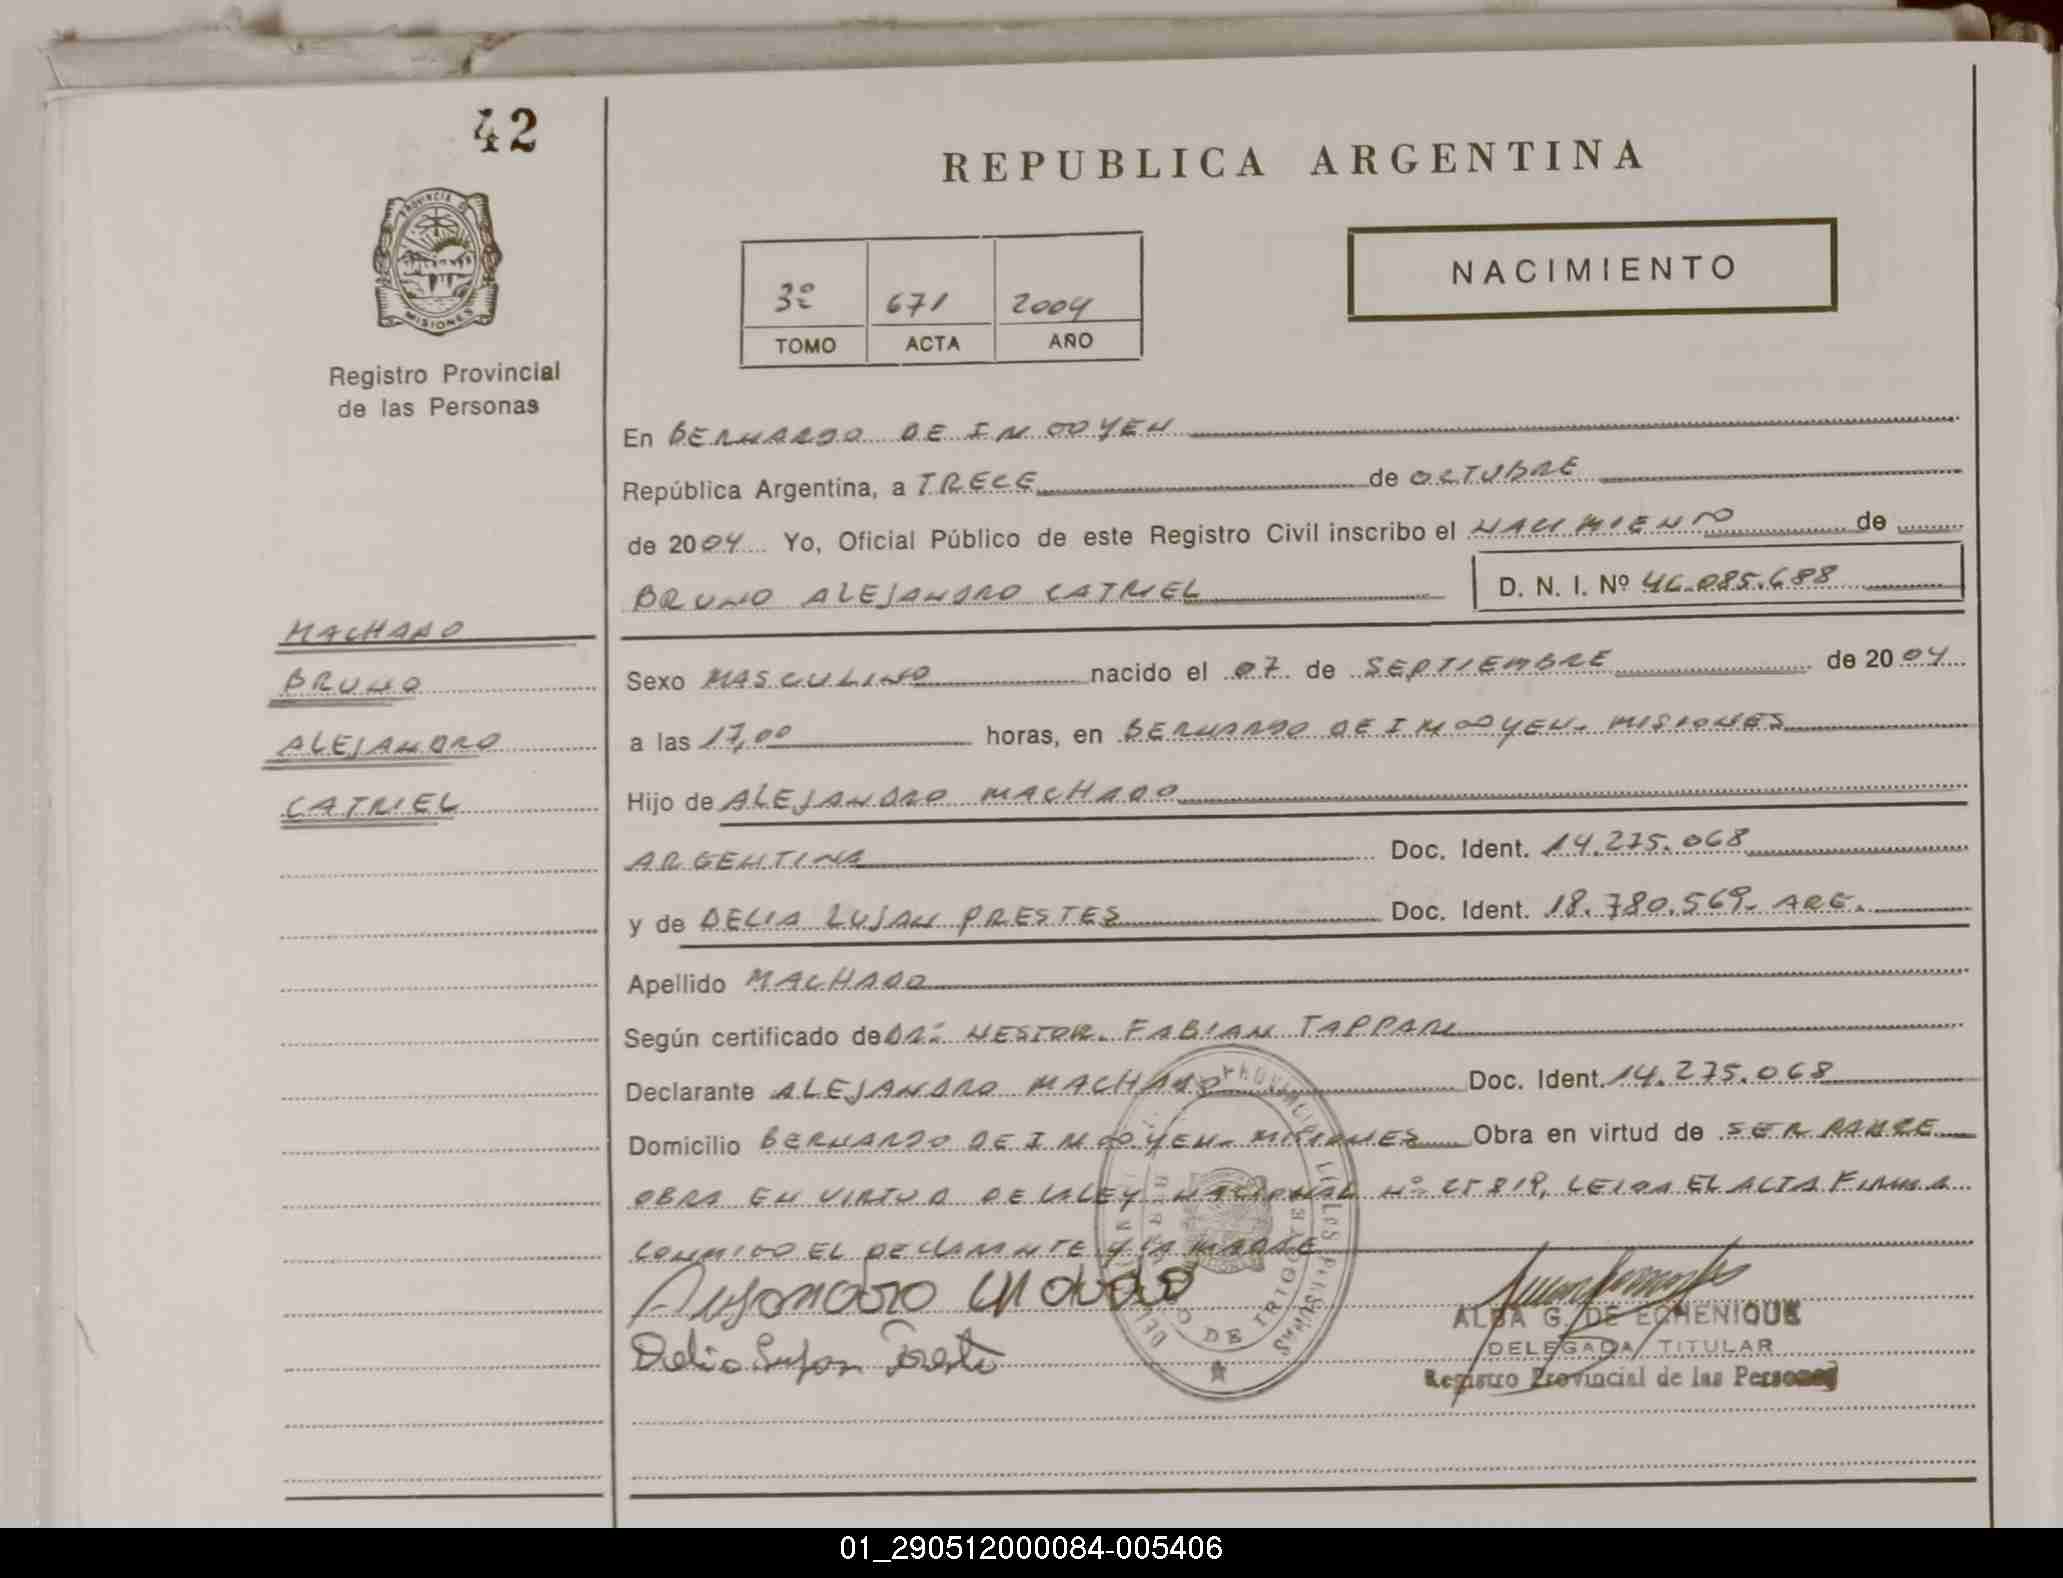 42
REPUBLICA ARGENTINA
NACIMIENTO
PROVINCIA DE
MISIONES
3º 671 2004
TOMO ACTA AÑO
Registro Provincial
de las Personas
En BERNARDO DE IRIGOYEN
República Argentina, a TRECE de OCTUBRE
de 2004 Yo, Oficial Público de este Registro Civil inscribo el NACIMIENTO de
BRUNO ALEJANDRO CATRIEL D. N. I. Nº 46.085.688
MACHADO
BRUNO
ALEJANDRO
CATRIEL
Sexo MASCULINO nacido el 07 de SEPTIEMBRE de 2004
a las 17,00 horas, en BERNARDO DE IRIGOYEN. MISIONES
Hijo de ALEJANDRO MACHADO
ARGENTINA Doc. Ident. 14.275.068
y de DELIA LUJAN PRESTES Doc. Ident. 18.780.569. ARG.
Apellido MACHADO
Según certificado de DR. NESTOR. FABIAN TAPPARI
Declarante ALEJANDRO MACHADO Doc. Ident. 14.275.068
Domicilio BERNARDO DE IRIGOYEN. MISIONES Obra en virtud de SER PADRE
OBRA EN VIRTUD DE LA LEY NACIONAL Nº 25819, LEIDA EL ACTA FIRMA
CONMIGO EL DECLARANTE Y LA MADRE
Delia Lujan Prestes
ALBA G. DE ECHENIQUE
DELEGADA TITULAR
Registro Provincial de las Personas
01_290512000084-005406